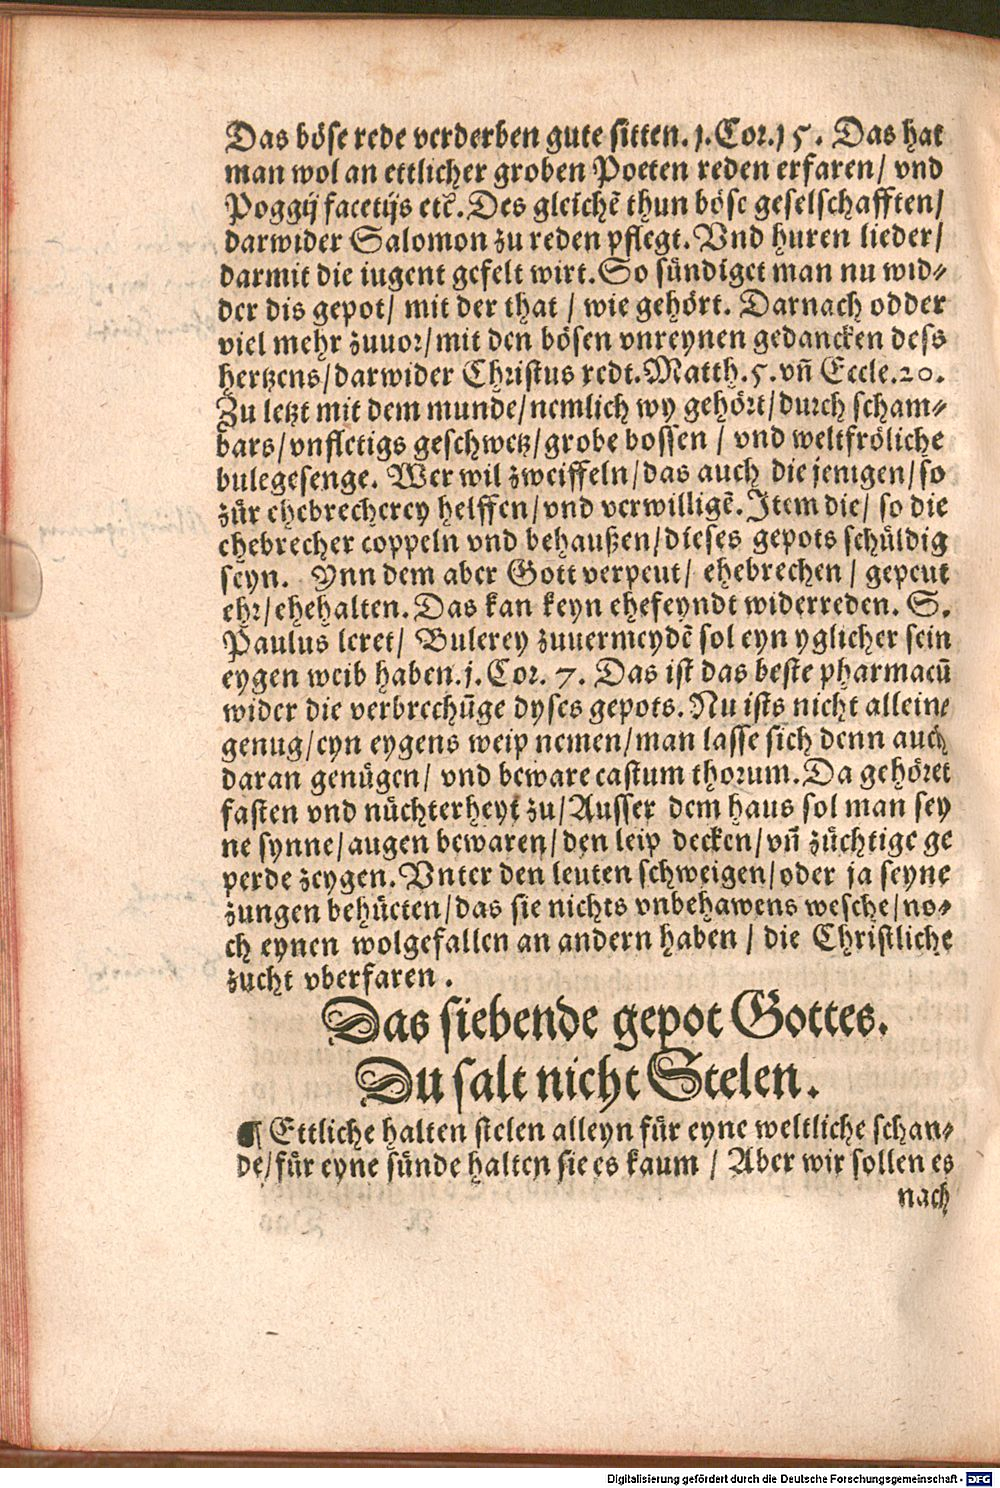 Das böse rede verderben gute sitten. j. Cor. j5. Das hat
man wol an ettlicher groben Poeten reden erfaren/ vnd
Poggij facetijs etc̄. Des gleichē thun böse geselschafften/
darwider Salomon zu reden pflegt. Vnd huren lieder/
darmit die iugent gefelt wirt. So sündiget man nu wid⸗
der dis gepot/ mit der that / wie gehört. Darnach odder
viel mehr zuuor/ mit den bösen vnreynen gedancken dess
hertzens/ darwider Christus redt. Matth. 5. vñ Eccle. 20.
Zu letzt mit dem munde/ nemlich wy gehört/ durch scham⸗
bars/ vnfletigs geschwetz/ grobe bossen / vnd weltfröliche
bulegesenge. Wer wil zweiffeln/ das auch die jenigen/ so
zůr ehebrecherey helffen/ vnd verwilligē. Item die/ so die
ehebrecher coppeln vnd behaußen/ dieses gepots schüldig
seyn. Ynn dem aber Gott verpeut/ ehebrechen / gepeut
ehr/ ehehalten. Das kan keyn ehefeyndt widerreden. S.
Paulus leret/ Bulerey zuuermeydē sol eyn yglicher sein
eygen weib haben. j. Cor. 7. Das ist das beste pharmacū
wider die verbrechūge dyses gepots. Nu ists nicht alleine
genug/ eyn eygens weip nemen/ man lasse sich denn auch
daran genügen/ vnd beware castum thorum. Da gehöret
fasten vnd nüchterheyt zu/ Ausser dem haus sol man sey
ne synne/ augen bewaren/ den leip decken/ vñ züchtige ge
perde zeygen. Vnter den leuten schweigen/ oder ja seyne
zungen behüeten/ das sie nichts vnbehawens wesche/ no⸗
ch eynen wolgefallen an andern haben / die Christliche
zucht vberfaren .
Das siebende gepot Gottes.
Du salt nicht Stelen.
¶ Ettliche halten stelen alleyn für eyne weltliche schan⸗
de/ für eyne sünde halten sie es kaum / Aber wir sollen es
nach
Digitalisierung gefördert durch die Deutsche Forschungsgemeinschaft - DFG